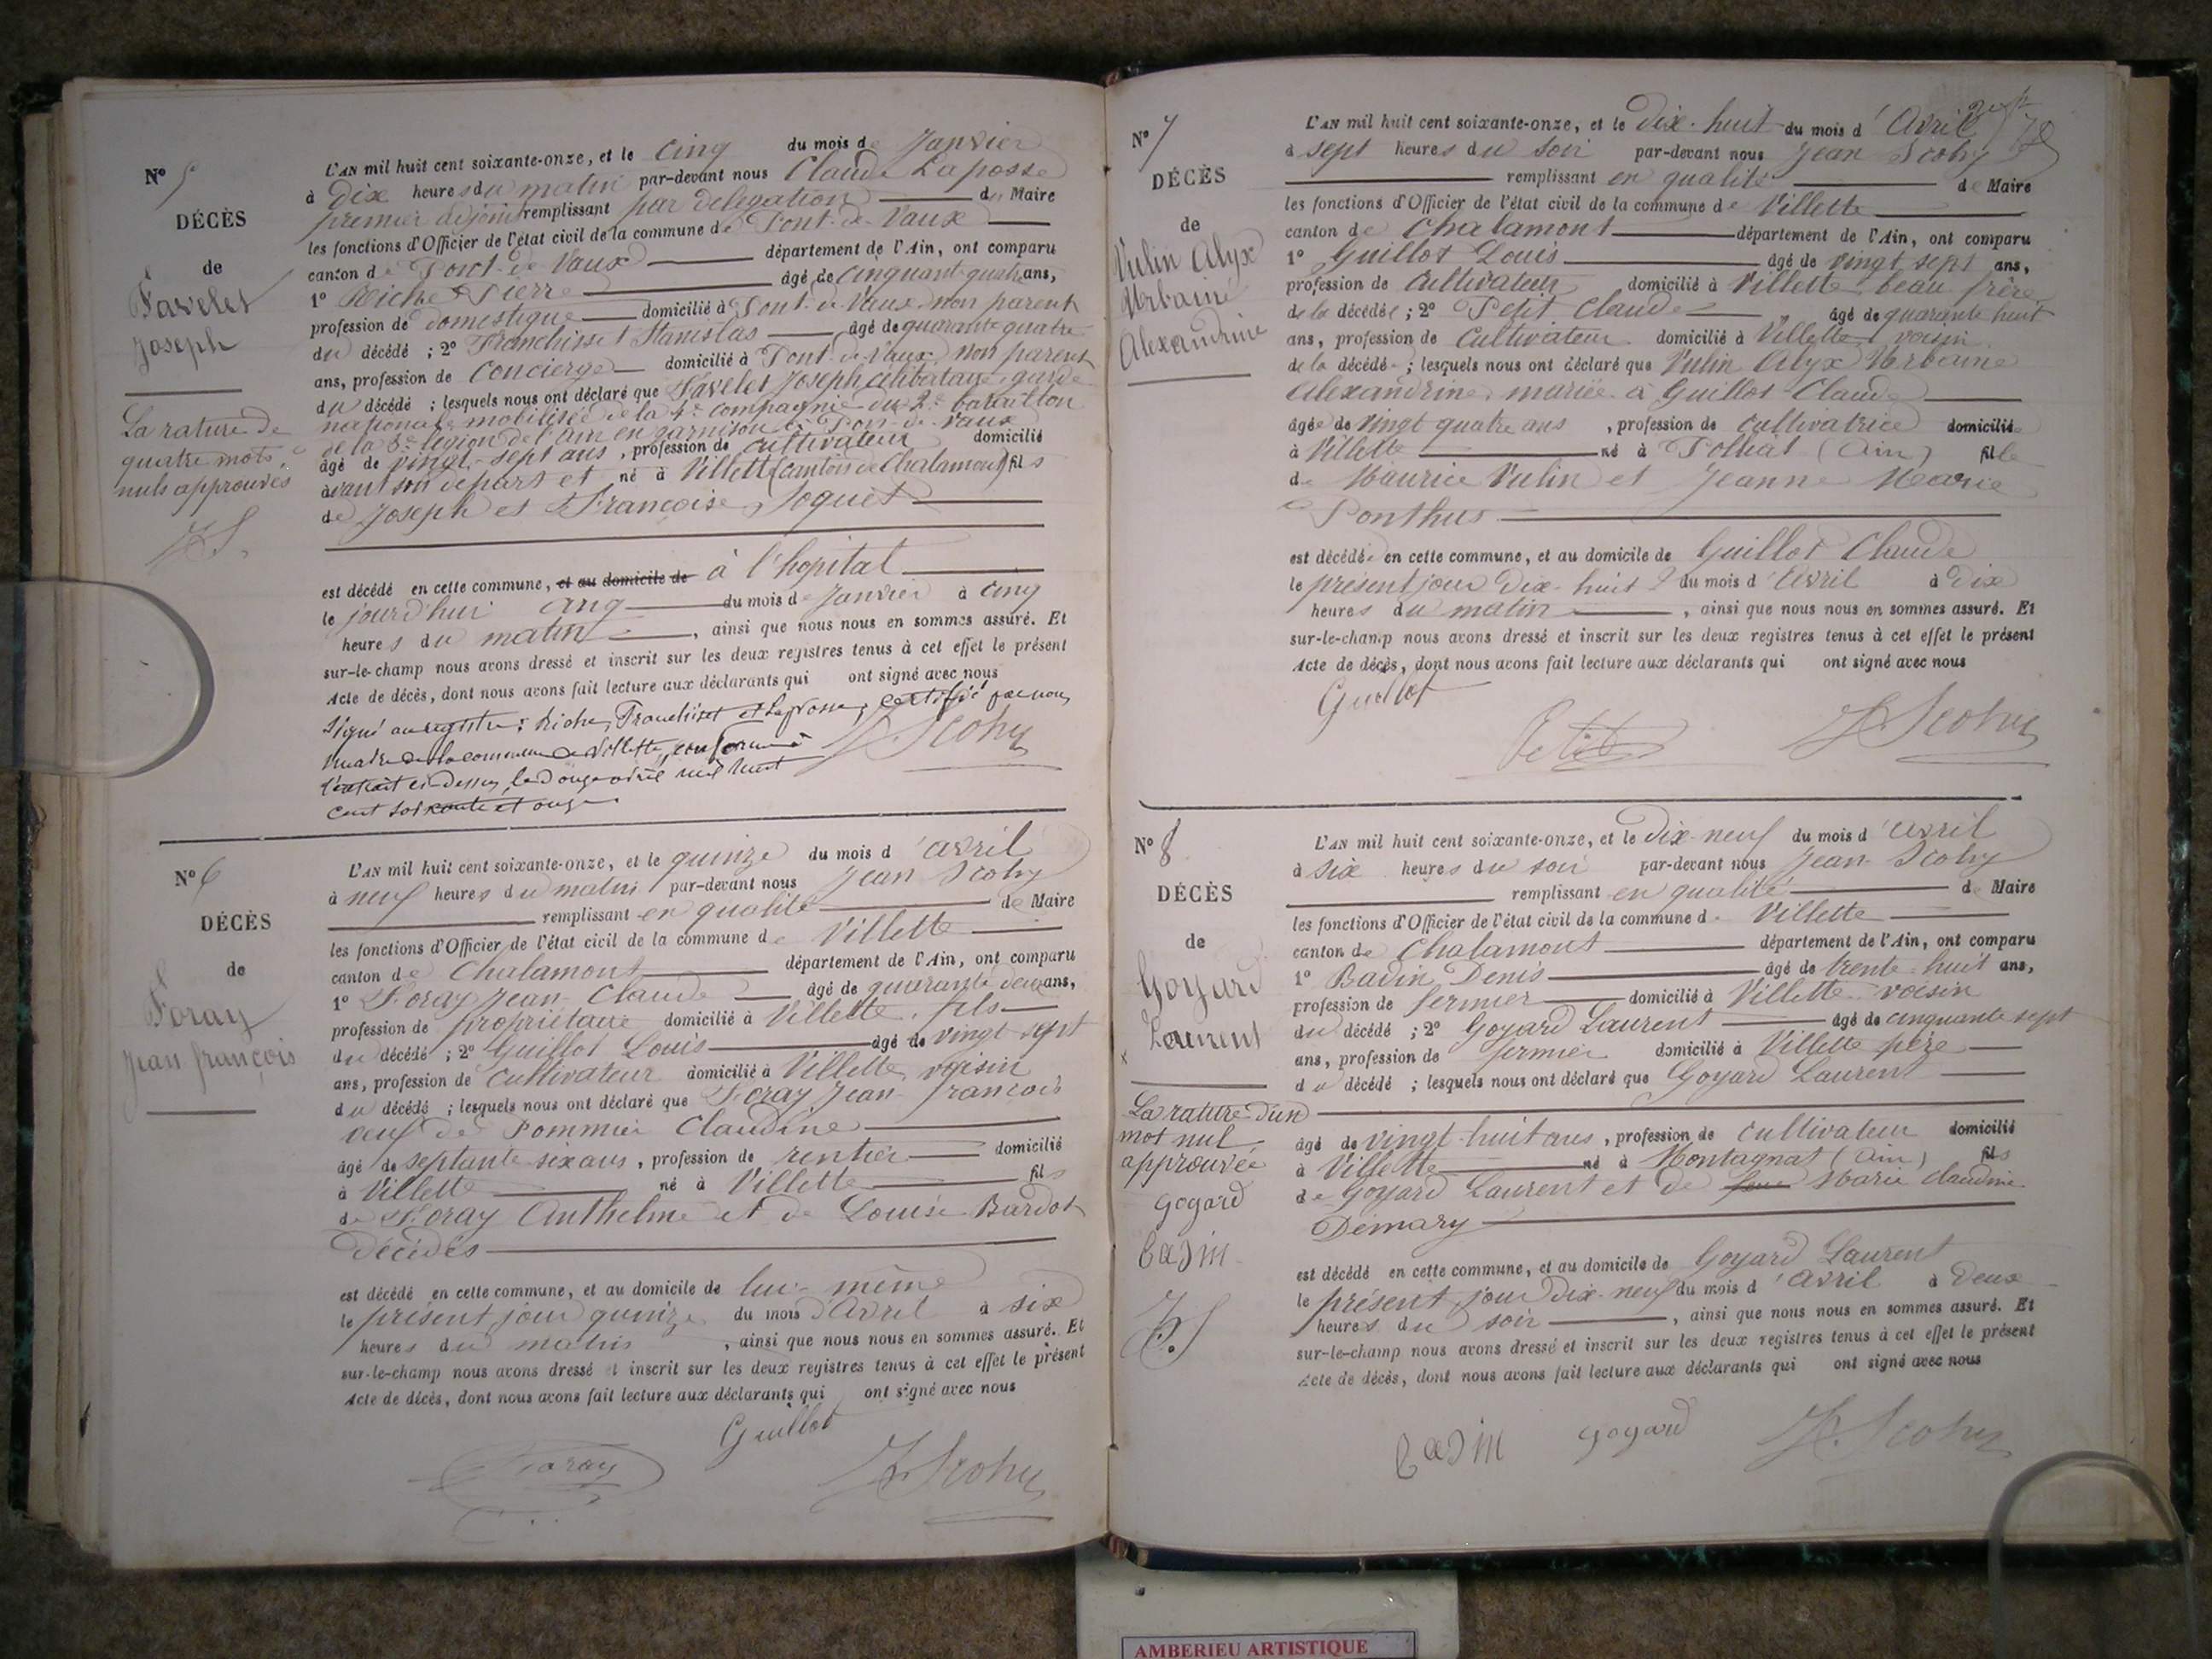 N° 5
DÉCÈS
de
Favelet
Joseph
La rature de
quatre mots
nuls approuvés
JS.
L'AN mil huit cent soixante-onze, et le cinq du mois de Janvier
à Dix heures du matin par-devant nous Claude Laposse
premier adjoint remplissant par delegation du Maire
les fonctions d'Officier de l'état civil de la commune de Pont-de-Vaux
canton de Pont-de-Vaux département de l'Ain, ont comparu
1° Riche Pierre âgé de cinquante quatre ans,
profession de domestique domicilié à Pont-de-Vaux non parent
du décédé ; 2° Franchisset Stanislas âgé de quarante quatre
ans, profession de concierge domicilié à Pont-de-Vaux non parent
du décédé ; lesquels nous ont déclaré que Favelet Joseph célibataire, garde
nationale mobilisée de la 4e compagnie du 2e bataillon
de la 3e légion de l'Ain en garnison à Pont-de-Vaux
âgé de vingt-sept ans, profession de cultivateur domicilié
avant son départ et né à Villette (canton de Chalamont) fils
de Joseph et Françoise Joquet
est décédé en cette commune, et au domicile de à l'hopital
le jourd'hui cinq du mois de Janvier à cinq
heures du matin, ainsi que nous nous en sommes assuré. Et
sur-le-champ nous avons dressé et inscrit sur les deux registres tenus à cet effet le présent
Acte de décès, dont nous avons fait lecture aux déclarants qui ont signé avec nous
Signé au registre : Riche, Franchisset et Laposse, certifié par nous,
maire de la commune de Villette, conforme à
l'extrait ci-dessus, le douze avril mil huit
cent soixante et onze
J. Scohy
N° 6
DÉCÈS
de
Foray
Jean françois
L'AN mil huit cent soixante-onze, et le quinze du mois d'avril
à neuf heures du matin par-devant nous Jean Scohy
remplissant en qualité de Maire
les fonctions d'Officier de l'état civil de la commune de Villette
canton de Chalamont département de l'Ain, ont comparu
1° Foray Jean-Claude âgé de quarante deux ans,
profession de propriétaire domicilié à Villette, fils
du décédé ; 2° Guillot Louis âgé de vingt sept
ans, profession de cultivateur domicilié à Villette, voisin
du décédé ; lesquels nous ont déclaré que Foray Jean-françois
veuf de Pommier Claudine
âgé de septante-six ans, profession de rentier domicilié
à Villette né à Villette fils
de Foray Anthelme et de Louise Bardot
Décédés
est décédé en cette commune, et au domicile de lui-même
le présent jour quinze du mois d'Avril à six
heures du matin, ainsi que nous nous en sommes assuré. Et
sur-le-champ nous avons dressé et inscrit sur les deux registres tenus à cet effet le présent
Acte de décès, dont nous avons fait lecture aux déclarants qui ont signé avec nous
Guillot
Foray J. Scohy
N° 7
DÉCÈS
de
Vulin Alyx
Urbaine
Alexandrine
L'AN mil huit cent soixante-onze, et le Dix-huit du mois d'Avril
à sept heures du soir par-devant nous Jean Scohy
remplissant en qualité de Maire
les fonctions d'Officier de l'état civil de la commune de Villette
canton de Chalamont département de l'Ain, ont comparu
1° Guillot Louis âgé de vingt sept ans,
profession de cultivateur domicilié à Villette beau frère
de la décédée ; 2° Petit Claude âgé de quarante huit
ans, profession de cultivateur domicilié à Villette voisin
de la décédée ; lesquels nous ont déclaré que Vulin Alyx Urbaine
Alexandrine, mariée à Guillot Claude
âgée de vingt quatre ans, profession de cultivatrice domiciliée
à Villette né à Polliat (Ain) fille
de Maurice Vulin et Jeanne Marie
Ponthus
est décédée en cette commune, et au domicile de Guillot Claude
le présent jour Dix-huit du mois d'Avril à Dix
heures du matin, ainsi que nous nous en sommes assuré. Et
sur-le-champ nous avons dressé et inscrit sur les deux registres tenus à cet effet le présent
Acte de décès, dont nous avons fait lecture aux déclarants qui ont signé avec nous
Guillot
Petit J. Scohy
N° 8
DÉCÈS
de
Goyard
Laurent
La rature d'un
mot nul
approuvée
goyard
badin
J.S
L'AN mil huit cent soixante-onze, et le Dix-neuf du mois d'avril
à six heures du soir par-devant nous Jean Scohy
remplissant en qualité de Maire
les fonctions d'Officier de l'état civil de la commune de Villette
canton de Chalamont département de l'Ain, ont comparu
1° Badin Denis âgé de trente-huit ans,
profession de fermier domicilié à Villette voisin
du décédé ; 2° Goyard Laurent âgé de cinquante sept
ans, profession de fermier domicilié à Villette père
du décédé ; lesquels nous ont déclaré que Goyard Laurent
âgé de vingt-huit ans, profession de cultivateur domicilié
à Villette né à Montagnat (Ain) fils
de Goyard Laurent et de Marie Claudine
Demary
est décédé en cette commune, et au domicile de Goyard Laurent
le présent jour Dix-neuf du mois d'avril à Deux
heures du soir, ainsi que nous nous en sommes assuré. Et
sur-le-champ nous avons dressé et inscrit sur les deux registres tenus à cet effet le présent
Acte de décès, dont nous avons fait lecture aux déclarants qui ont signé avec nous
badin goyard J. Scohy
AMBERIEU ARTISTIQUE